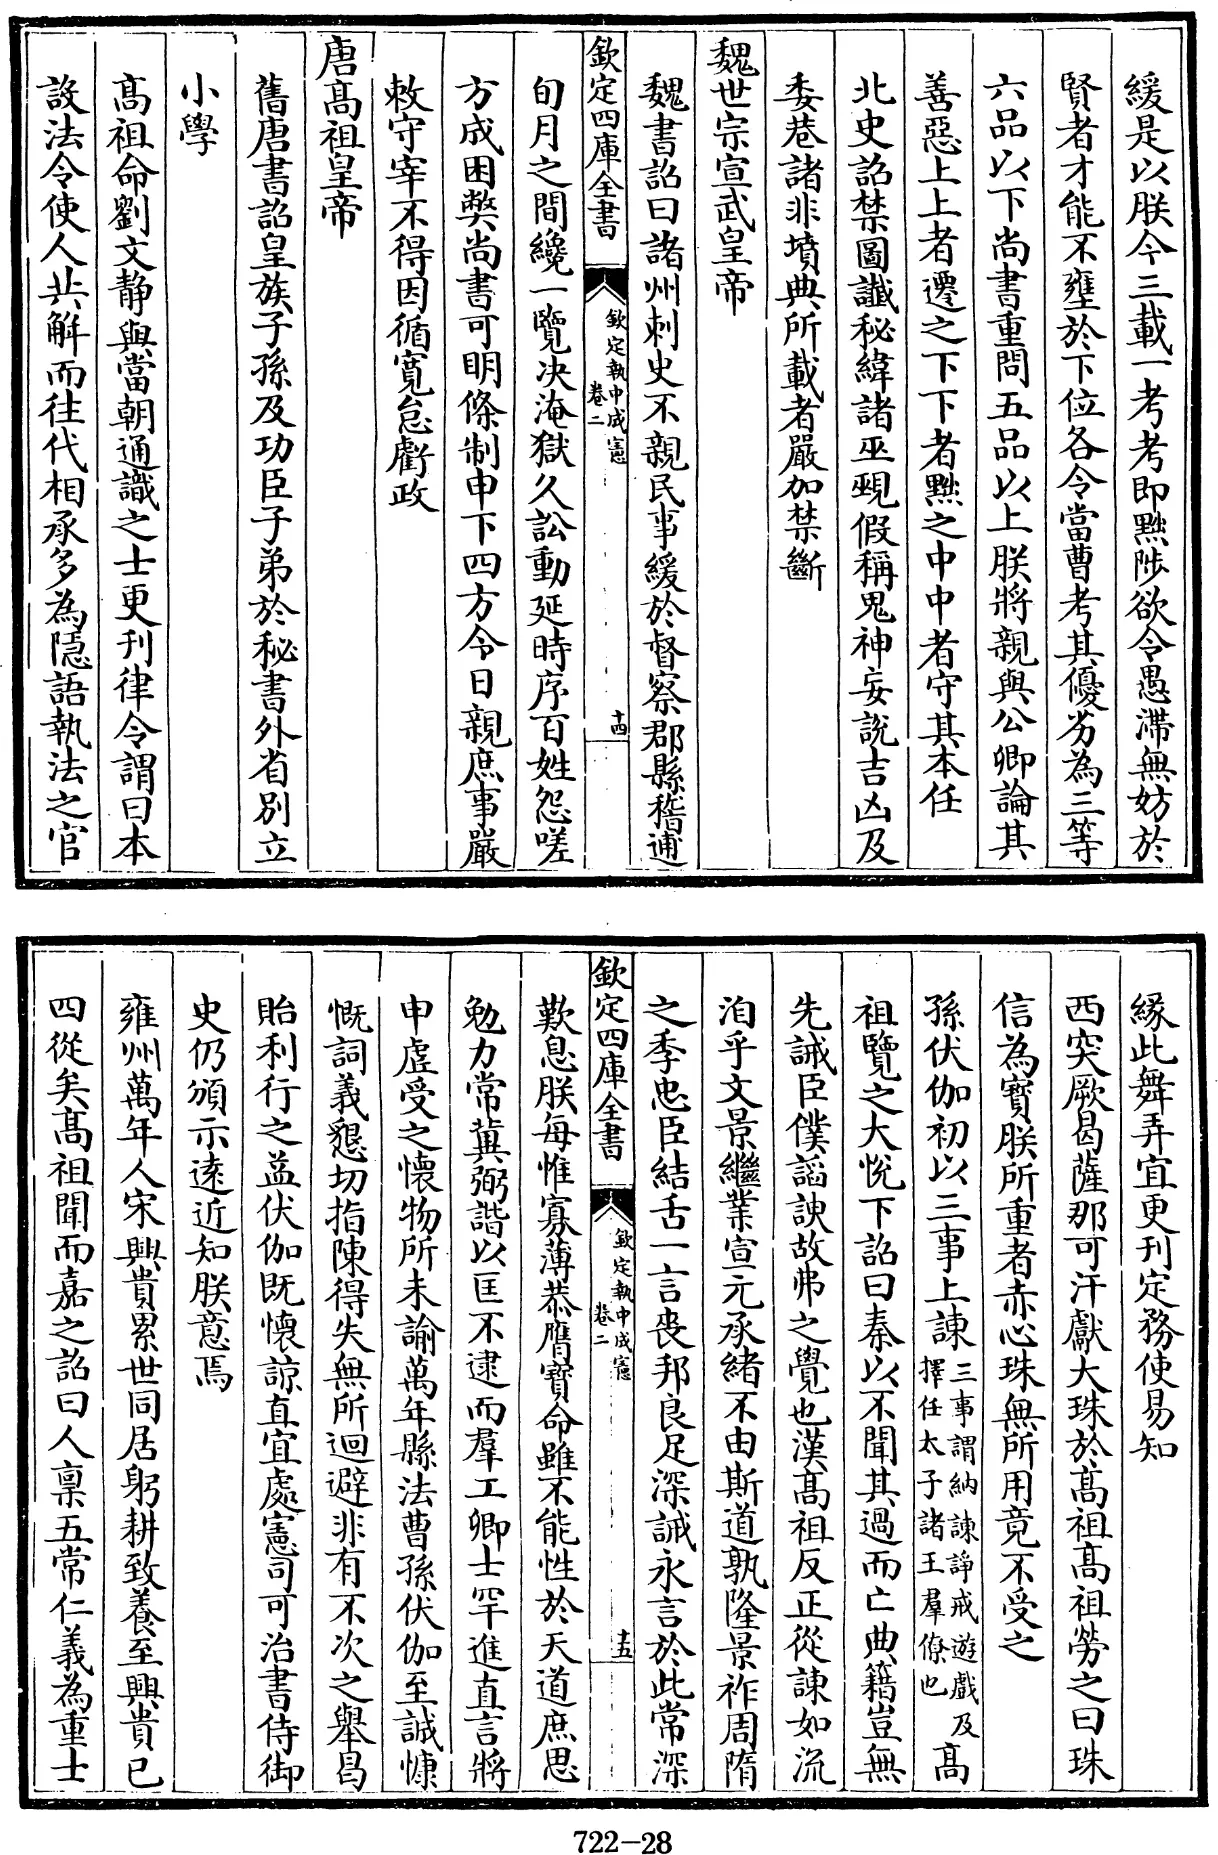 緩是以朕今三載一考考即黜陟欲令愚滯無妨於
賢者才能不壅於下位各令當曹考其優劣為三等
六品以下尚書重問五品以上朕將親與公卿論其
善惡上上者遷之下下者黜之中中者守其本任
北史詔禁圖讖秘緯諸巫覡假稱鬼神妄說吉凶及
委巷諸非墳典所載者嚴加禁斷
魏世宗宣武皇帝
魏書詔曰諸州刺史不親民事緩於督察郡縣稽逋
欽定四庫全書
欽定執中成憲
卷二
十四
旬月之間纔一覽決淹獄久訟動延時序百姓怨嗟
方成困弊尚書可明條制申下四方令日親庶事嚴
敕守宰不得因循寬怠虧政
唐高祖皇帝
舊唐書詔皇族子孫及功臣子弟於秘書外省別立
小學
高祖命劉文靜與當朝通識之士更刊律令謂曰本
設法令使人共解而往代相承多為隱語執法之官
緣此舞弄宜更刊定務使易知
西突厥曷薩那可汗獻大珠於高祖高祖勞之曰珠
信為寶朕所重者赤心珠無所用竟不受之
孫伏伽初以三事上諫三事謂納諫諍戒遊戲及擇任太子諸王羣僚也高
祖覽之大悅下詔曰秦以不聞其過而亡典籍豈無
先誡臣僕諂諛故弗之覺也漢高祖反正從諫如流
洎乎文景繼業宣元承緒不由斯道孰隆景祚周隋
之季忠臣結舌一言喪邦良足深誡永言於此常深
欽定四庫全書
欽定執中成憲
卷二
十五
歎息朕每惟寡薄恭膺寶命雖不能性於天道庶思
勉力常冀弼諧以匡不逮而羣工卿士罕進直言將
申虛受之懷物所未諭萬年縣法曹孫伏伽至誠慷
慨詞義懇切指陳得失無所迴避非有不次之舉曷
貽利行之益伏伽既懷諒直宜處憲司可治書侍御
史仍頒示遠近知朕意焉
雍州萬年人宋興貴累世同居躬耕致養至興貴已
四從矣高祖聞而嘉之詔曰人稟五常仁義為重士
722-28